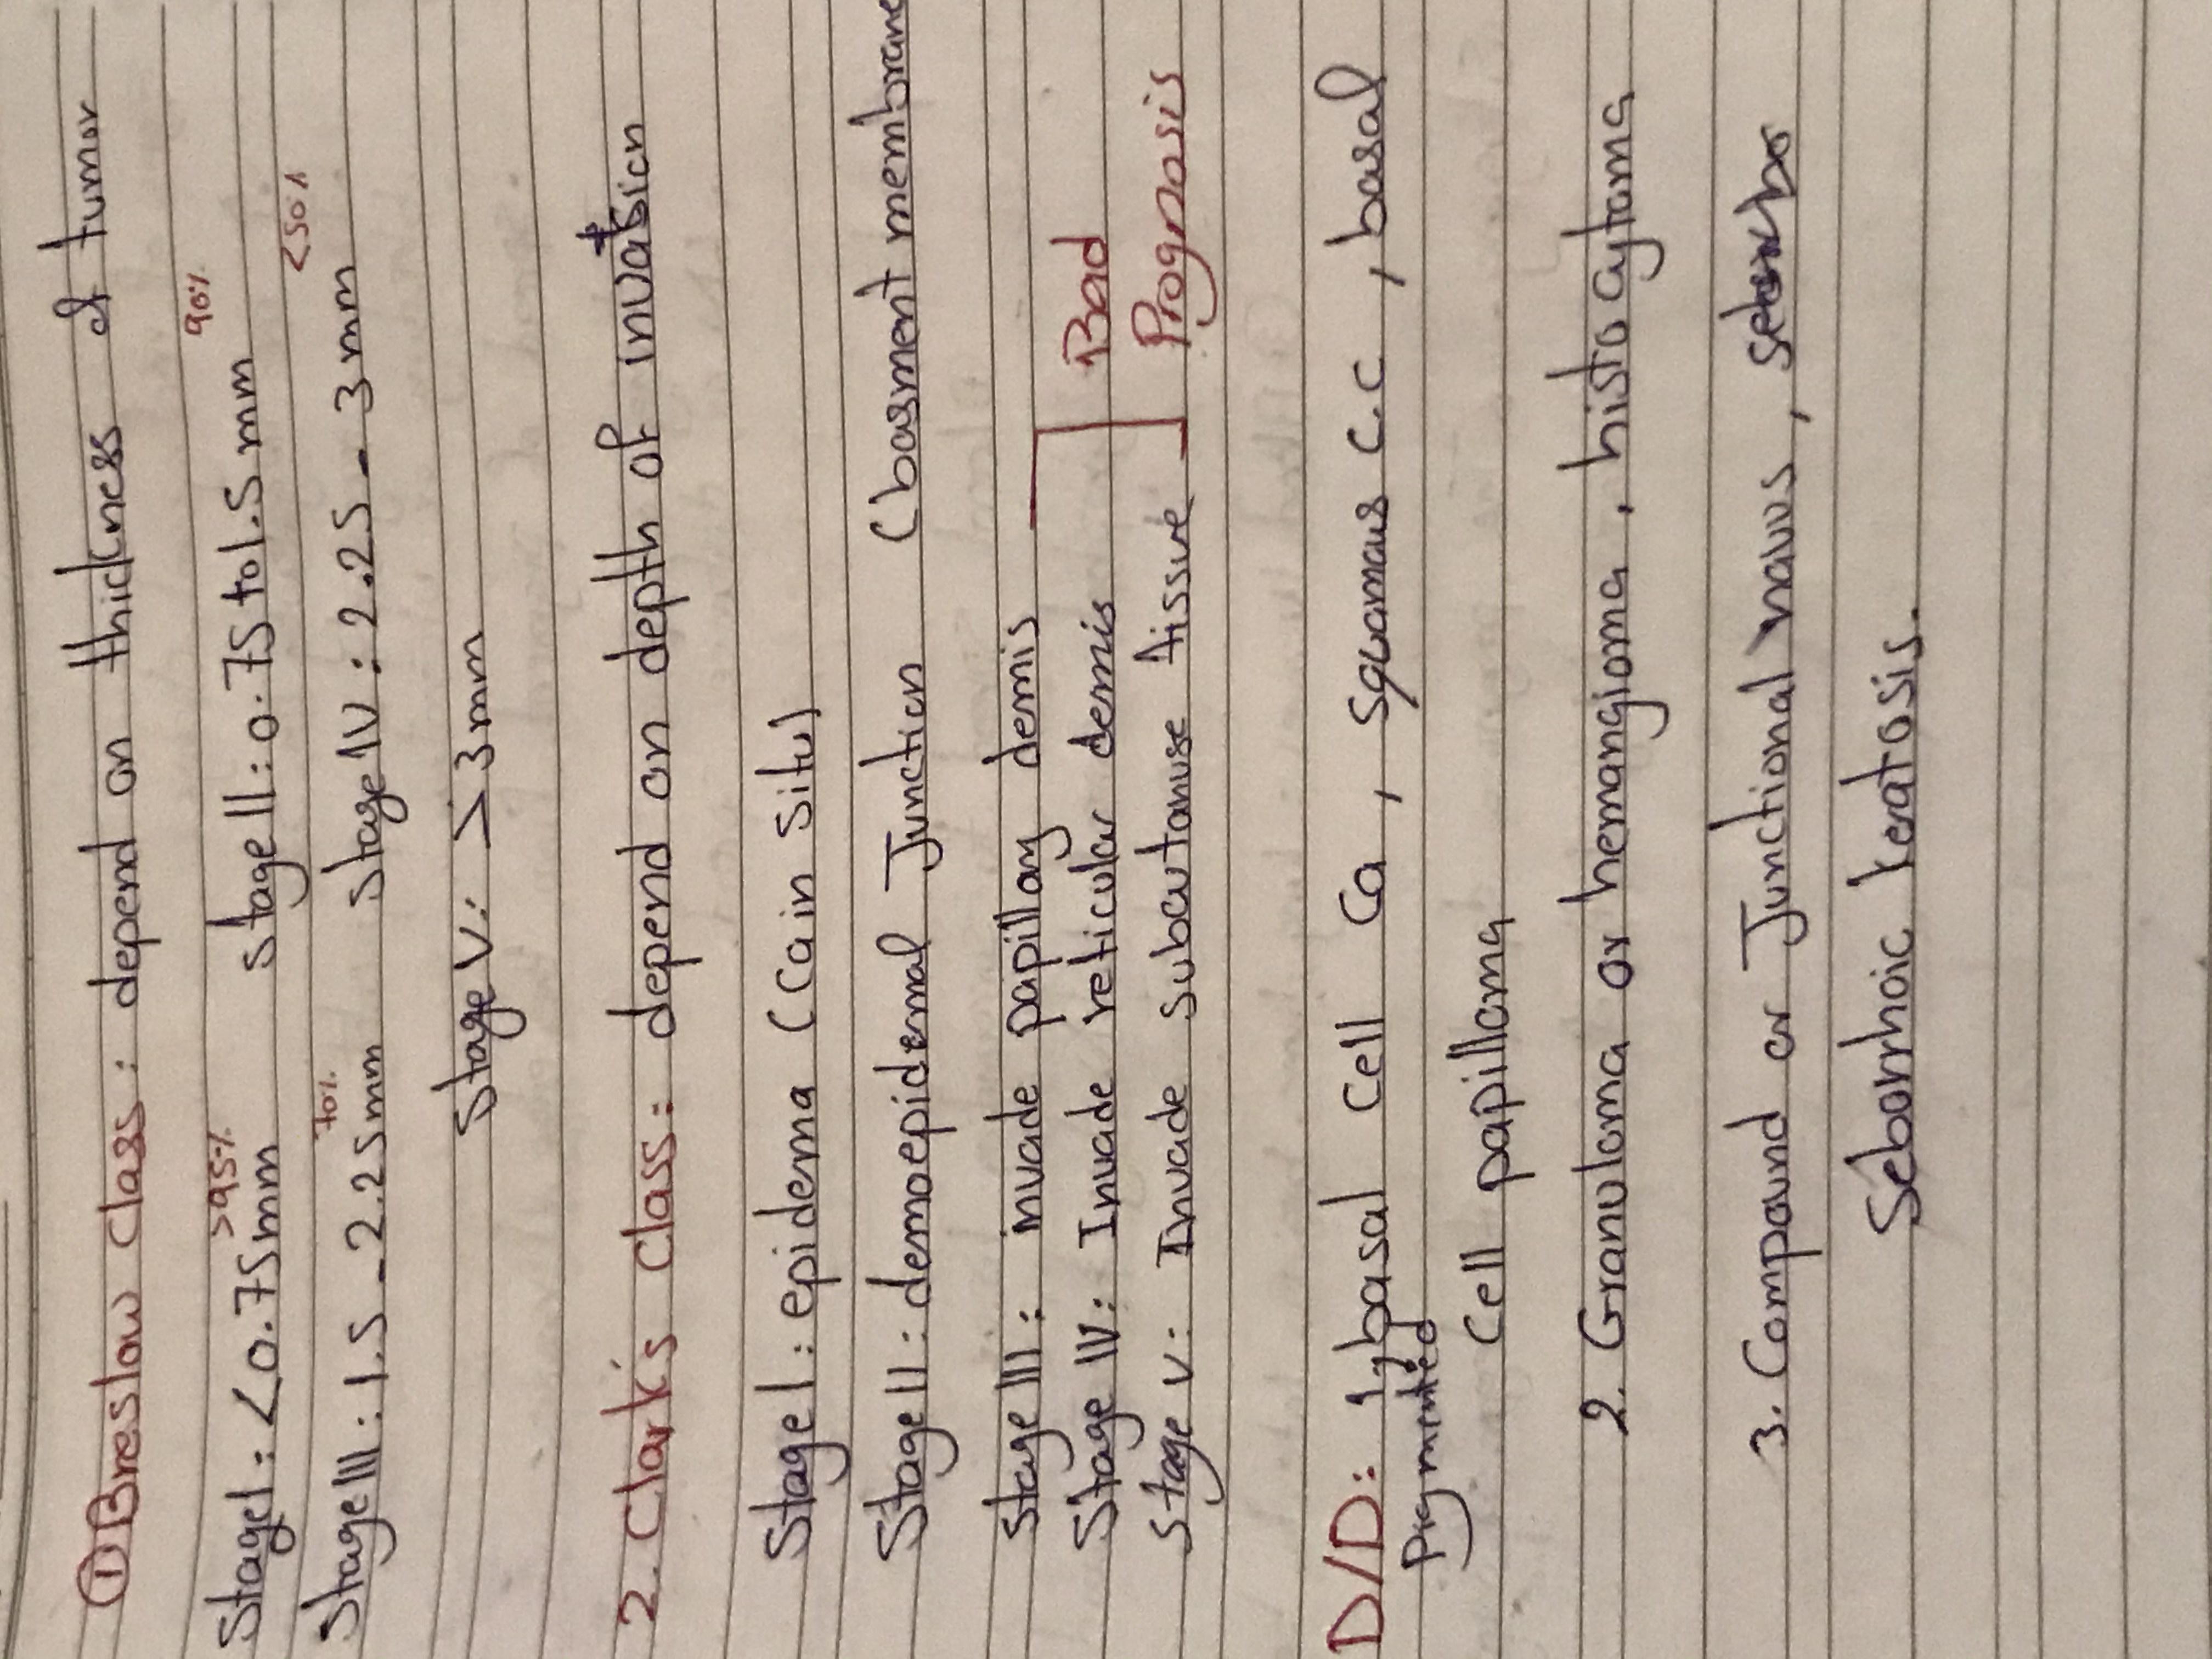 ① Breslow class : depend on thickness of tumor
>95% 90%
Stage I : <0.75mm stage II : 0.75 to 1.5 mm
70% <50%
Stage III : 1.5 - 2.25mm stage IV : 2.25 - 3mm
stage V : >3mm
2. Clark's class : depend on depth of invasion
Stage I : epiderma (Ca in situ)
Stage II : demoepidermal Junction (basment membrane
Stage III : invade papillary demis
Stage IV : Invade reticular demis Bad
stage V : Invade subcutanuse tissue Prognosis
D/D : 1, basal cell Ca , Squamous C.C , basal
Pigmented
Cell papilloma
2. Granuloma or hemangioma , histiocytoma
3. Compound or Junctional navus ,
Seborrhoic keratosis.